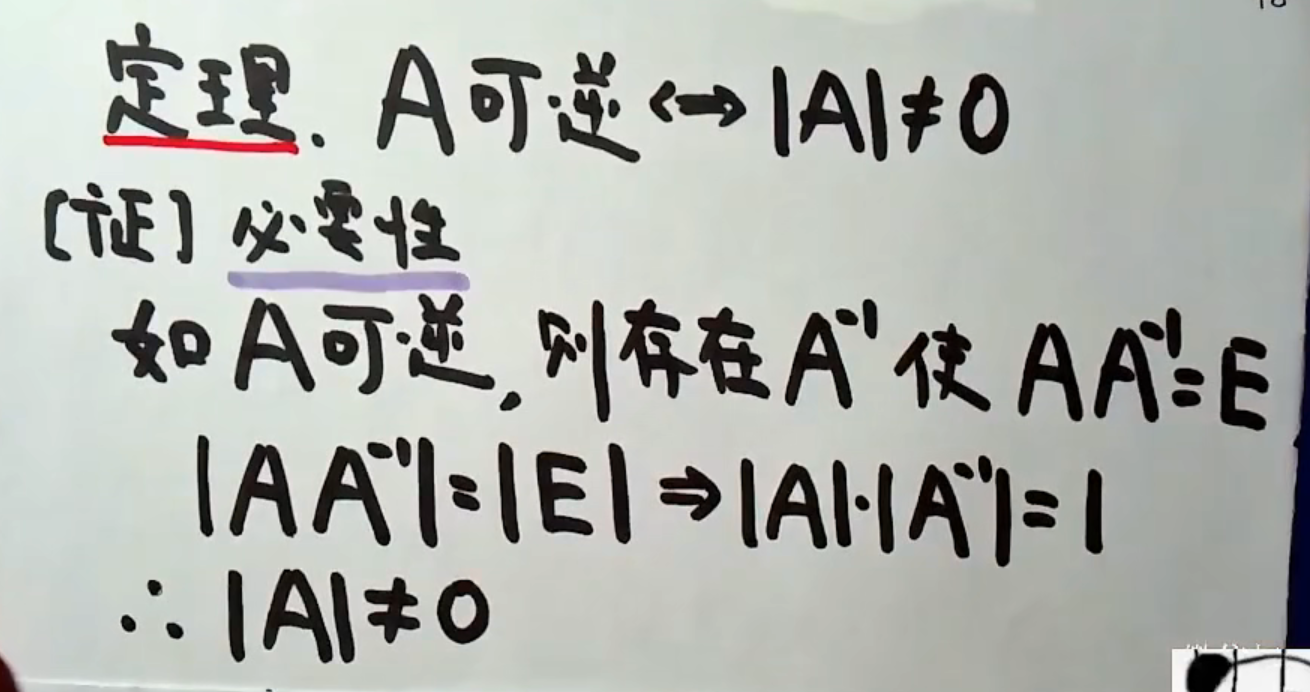 定理. A可逆 ⟷ |A|≠0
[证] 必要性
如A可逆, 则存在A⁻¹使 AA⁻¹=E
|AA⁻¹|=|E| ⇒ |A|·|A⁻¹|=1
∴ |A|≠0